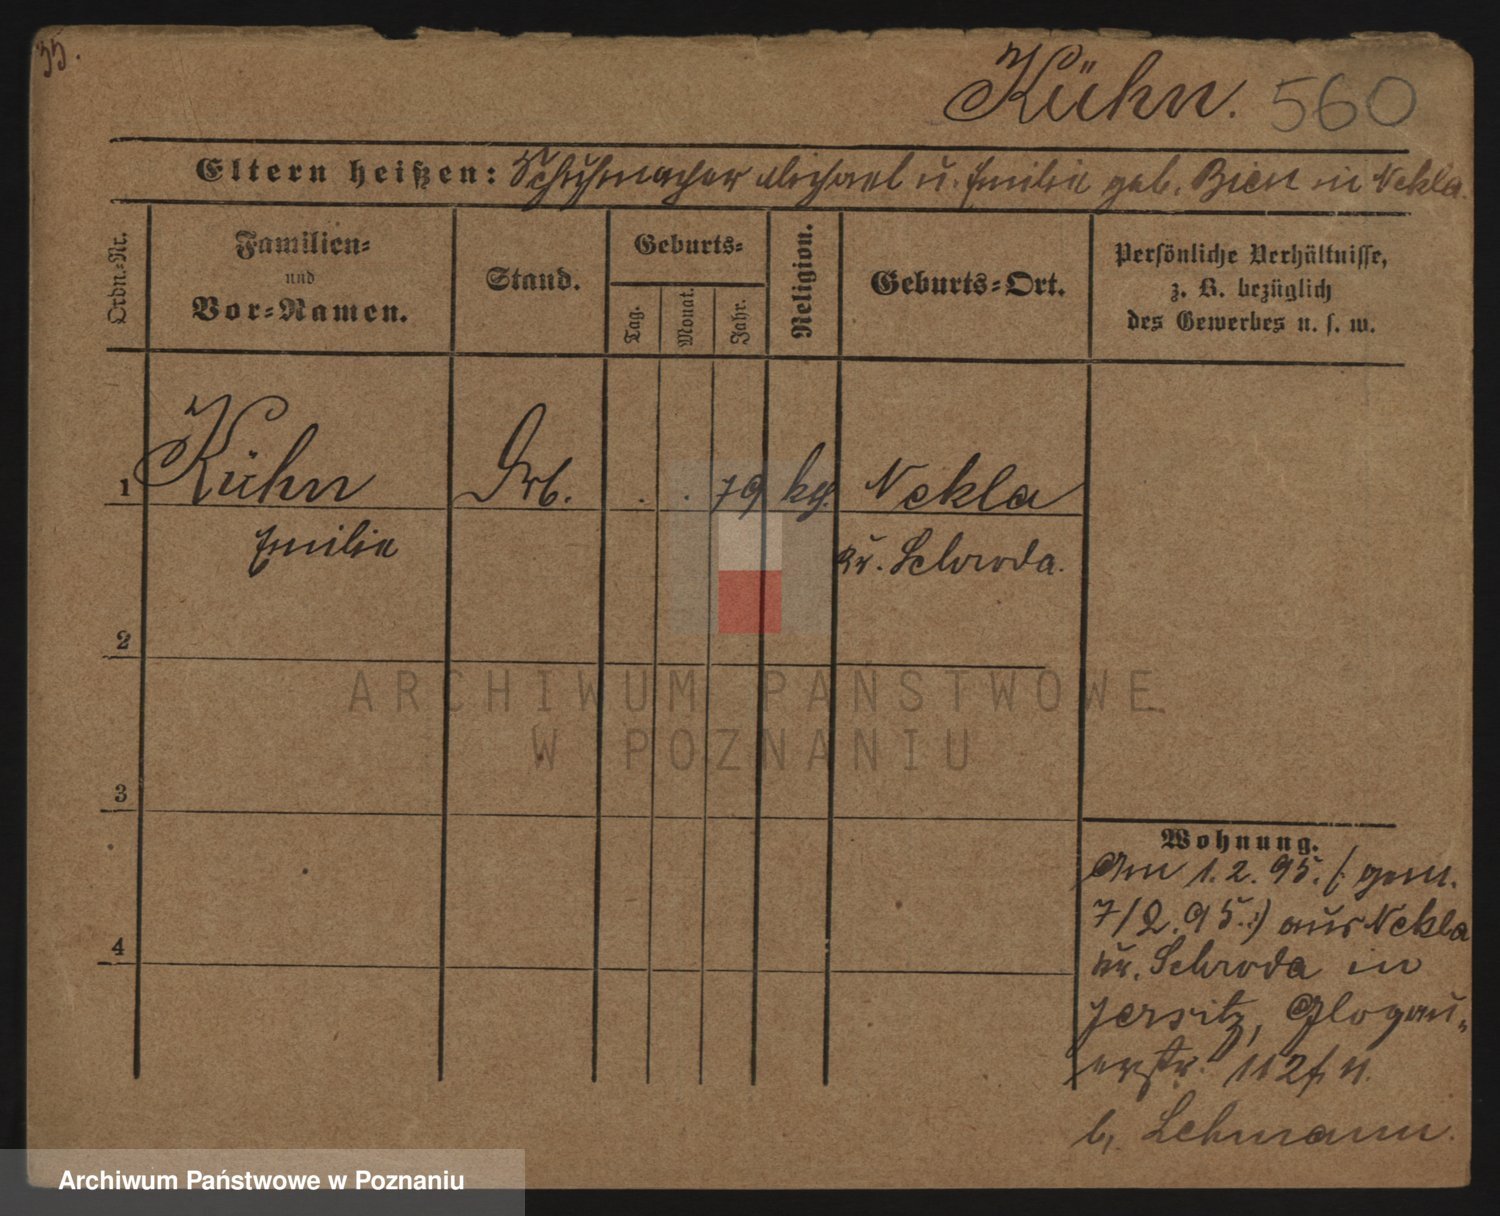 35.
Kühn. 560
Eltern heißen: Schuhmacher Michael u. Emilie geb. Bien in Nekla.
Ordn.=Nr.
Familien=
und
Vor=Namen.
Stand.
Geburts=
Tag.
Monat.
Jahr.
Religion.
Geburts=Ort.
Persönliche Verhältnisse,
z. B. bezüglich
des Gewerbes u. s. w.
1 Kühn . . 79 Nekla
Emilie Kr. Schroda.
2
3
4
Wohnung.
Am 1.2.95. (: gem.
7/2.95.:) aus Nekla
Kr. Schroda in
Jersitz, Glogau=
erstr. 112
b. Lehmann.
ARCHIWUM PAŃSTWOWE
W POZNANIU
Archiwum Państwowe w Poznaniu